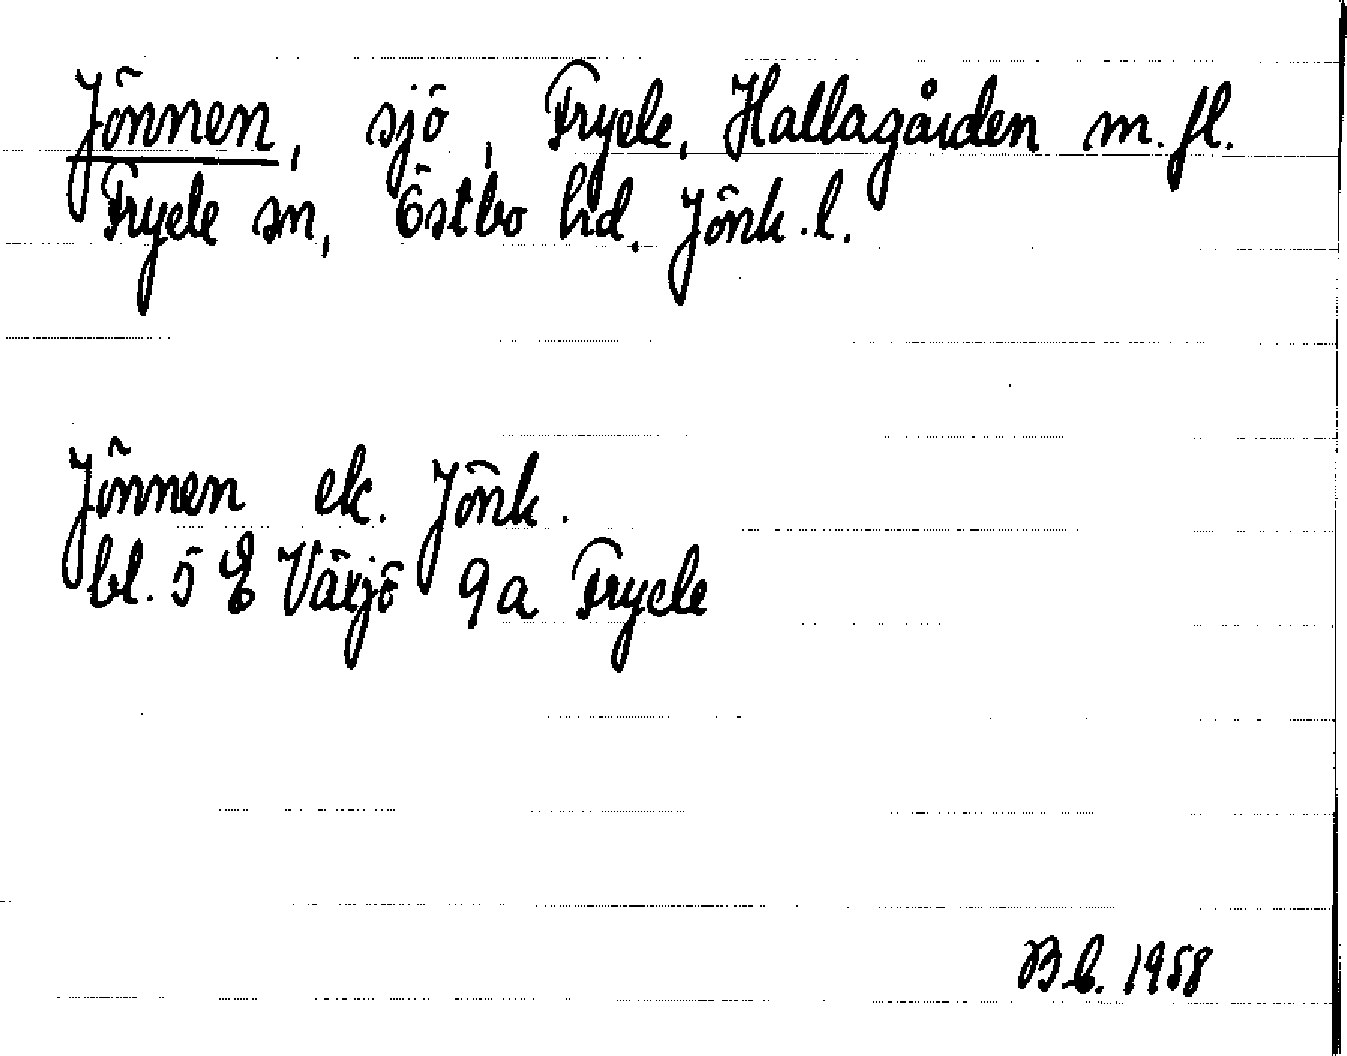 Jönnen, sjö, Fryele, Hallagården m. fl.
Fryele sn, Östbo hd. Jönk. l.
Jönnen ek. Jönk.
bl. 5 E Växjö 9a Fryele
B.b. 1958